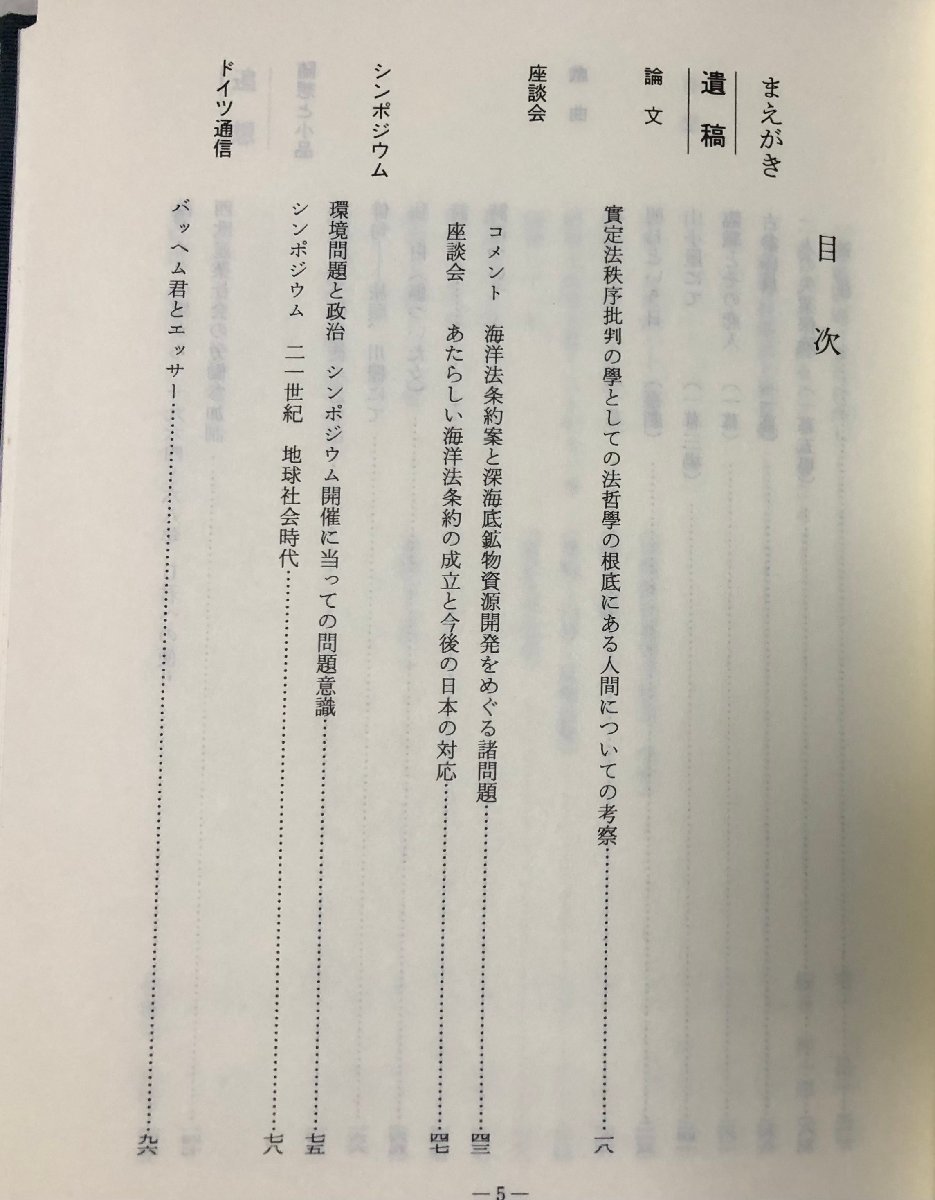 目次
まえがき
遺稿
論文
實定法秩序批判の學としての法哲學の根底にある人間についての考察……一八
座談会
コメント 海洋法条約案と深海底鉱物資源開発をめぐる諸問題……四三
座談会 あたらしい海洋法条約の成立と今後の日本の対応……四七
シンポジウム
環境問題と政治 シンポジウム開催に当っての問題意識……七五
シンポジウム 二一世紀 地球社会時代……七八
ドイツ通信
バッヘム君とエッサー……九六
—5—